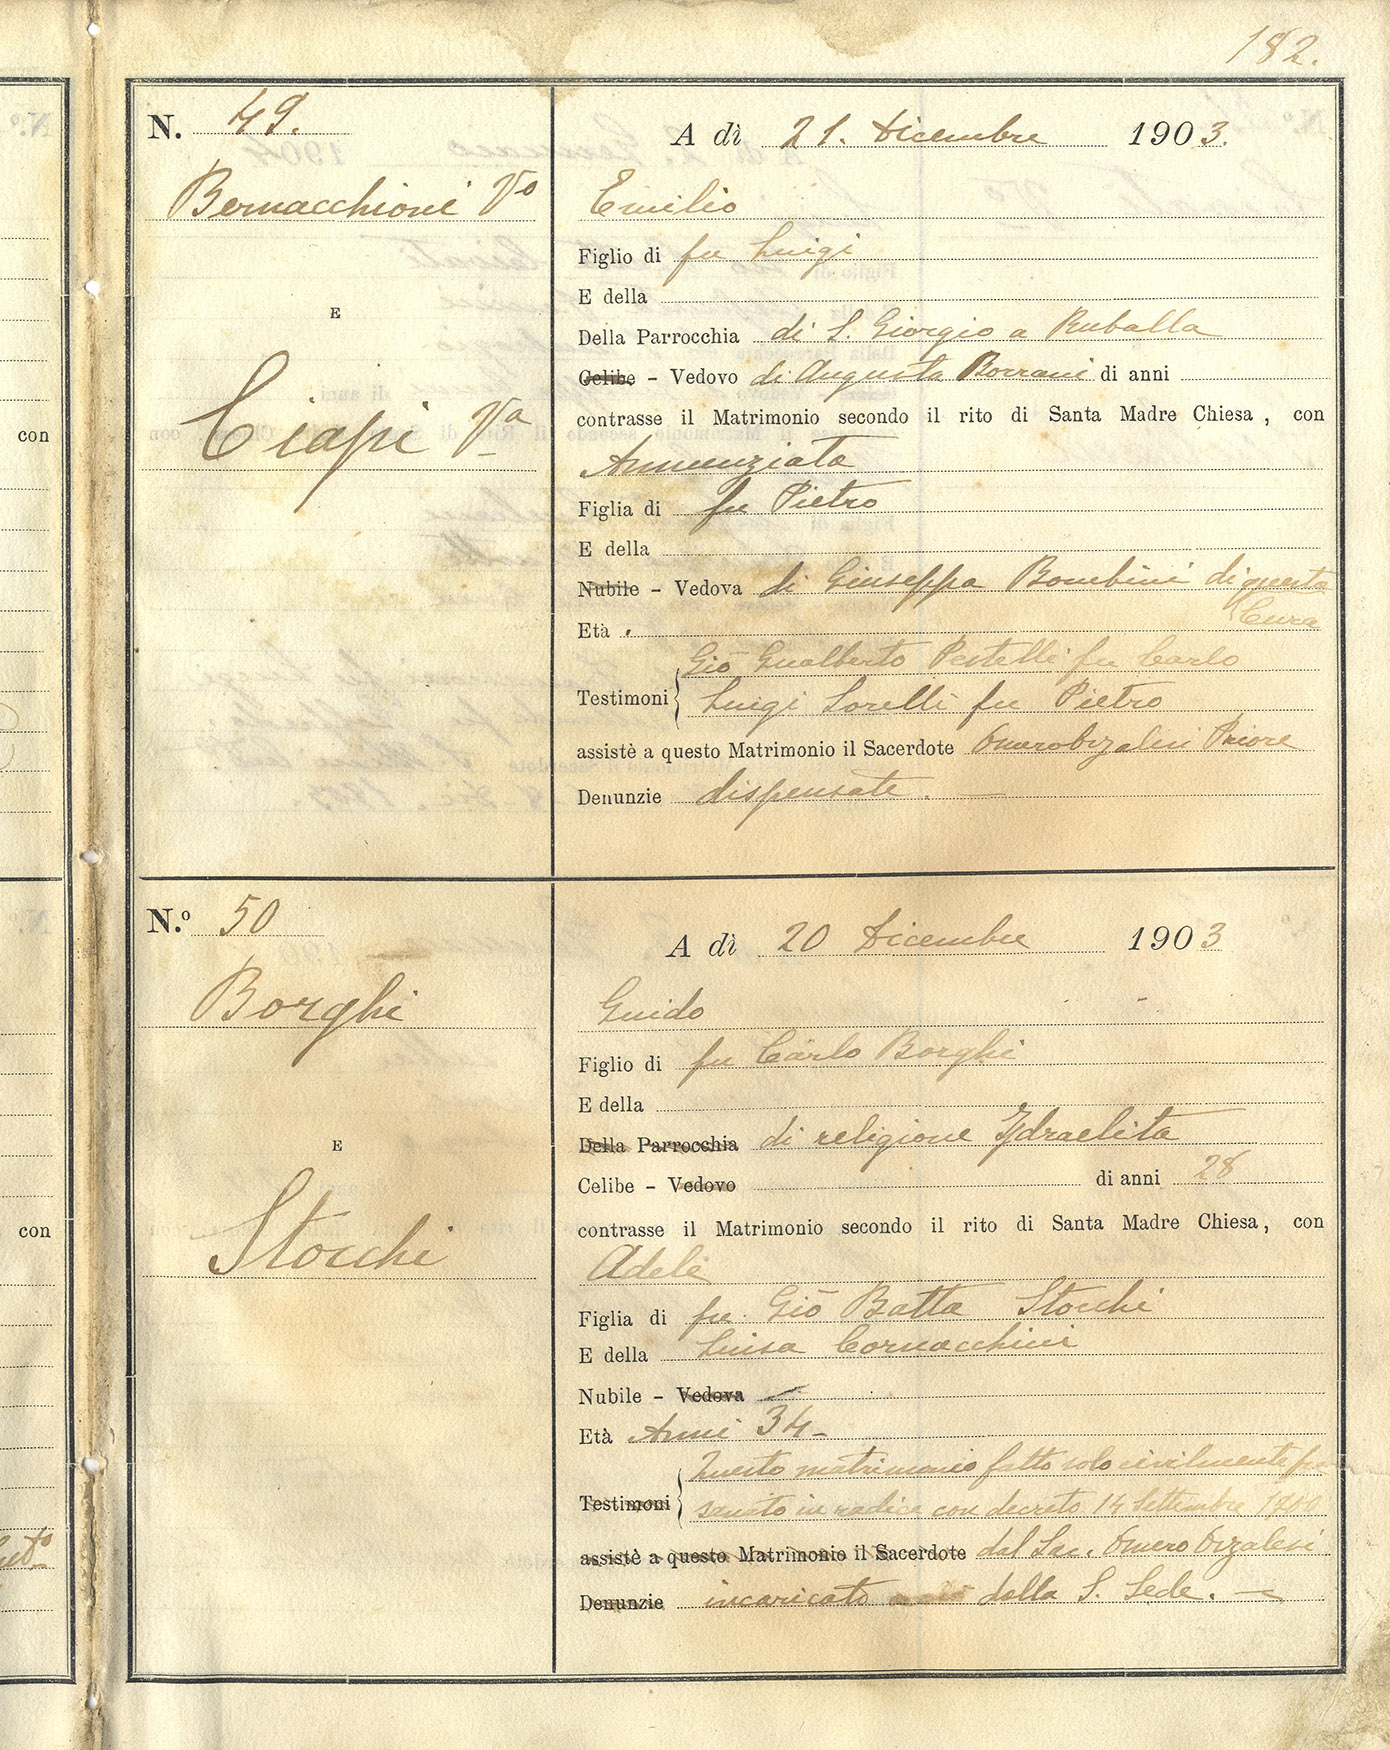 182.
N. 49.
A dì 21. Dicembre 1903.
Bernacchioni Vo
Emilio
Figlio di fu Luigi
E
E della
Della Parrocchia di S. Giorgio a Ruballa
Celibe - Vedovo di Augusta Borrani di anni
Ciapi Va
contrasse il Matrimonio secondo il rito di Santa Madre Chiesa, con
Annunziata
Figlia di fu Pietro
E della
Nubile - Vedova di Giuseppe Bombini di questa
Cura
Età .
Gio Gualberto Pestelli fu Carlo
Testimoni
Luigi Sorelli fu Pietro
assistè a questo Matrimonio il Sacerdote Omero Orzalesi Priore
Denunzie dispensate.
con
N.º 50
A dì 20 Dicembre 1903
Borghi
Guido
Figlio di fu Carlo Borghi
E della
E
Della Parrocchia di religione Isdraelita
Celibe - Vedovo di anni 28
Stocchi
contrasse il Matrimonio secondo il rito di Santa Madre Chiesa, con
Adele
Figlia di fu Gio Batta Stocchi
E della Luisa Cornacchini
Nubile - Vedova
Età Anni 34
Questo matrimonio fatto solo civilmente fu
Testimoni
sanato in radice con decreto 14 Settembre
assistè a questo Matrimonio il Sacerdote dal Sac. Omero Orzalesi
Denunzie incaricato dalla S. Sede.
con